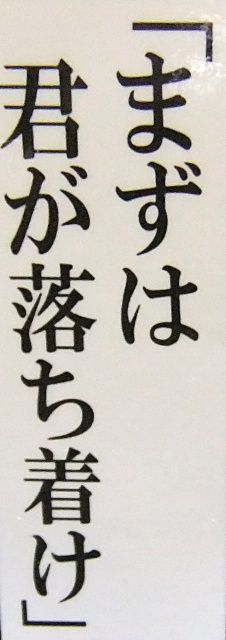 「まずは
君が落ち着け」